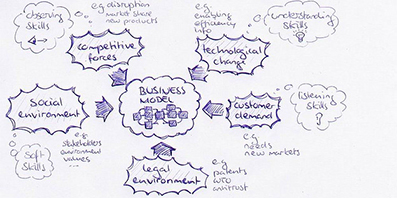 observing
skills
e.g. disruption
market share
new products
competitive
forces
e.g.
enabling
efficiency
info
technological
change
understanding
skills
BUSINESS
MODEL
Social
environment
e.g
stakeholders
environment
values
...
Soft
Skills
customer
demand
e.g
needs
new markets
listening
skills
legal
environment
e.g
patents
WTO
antitrust